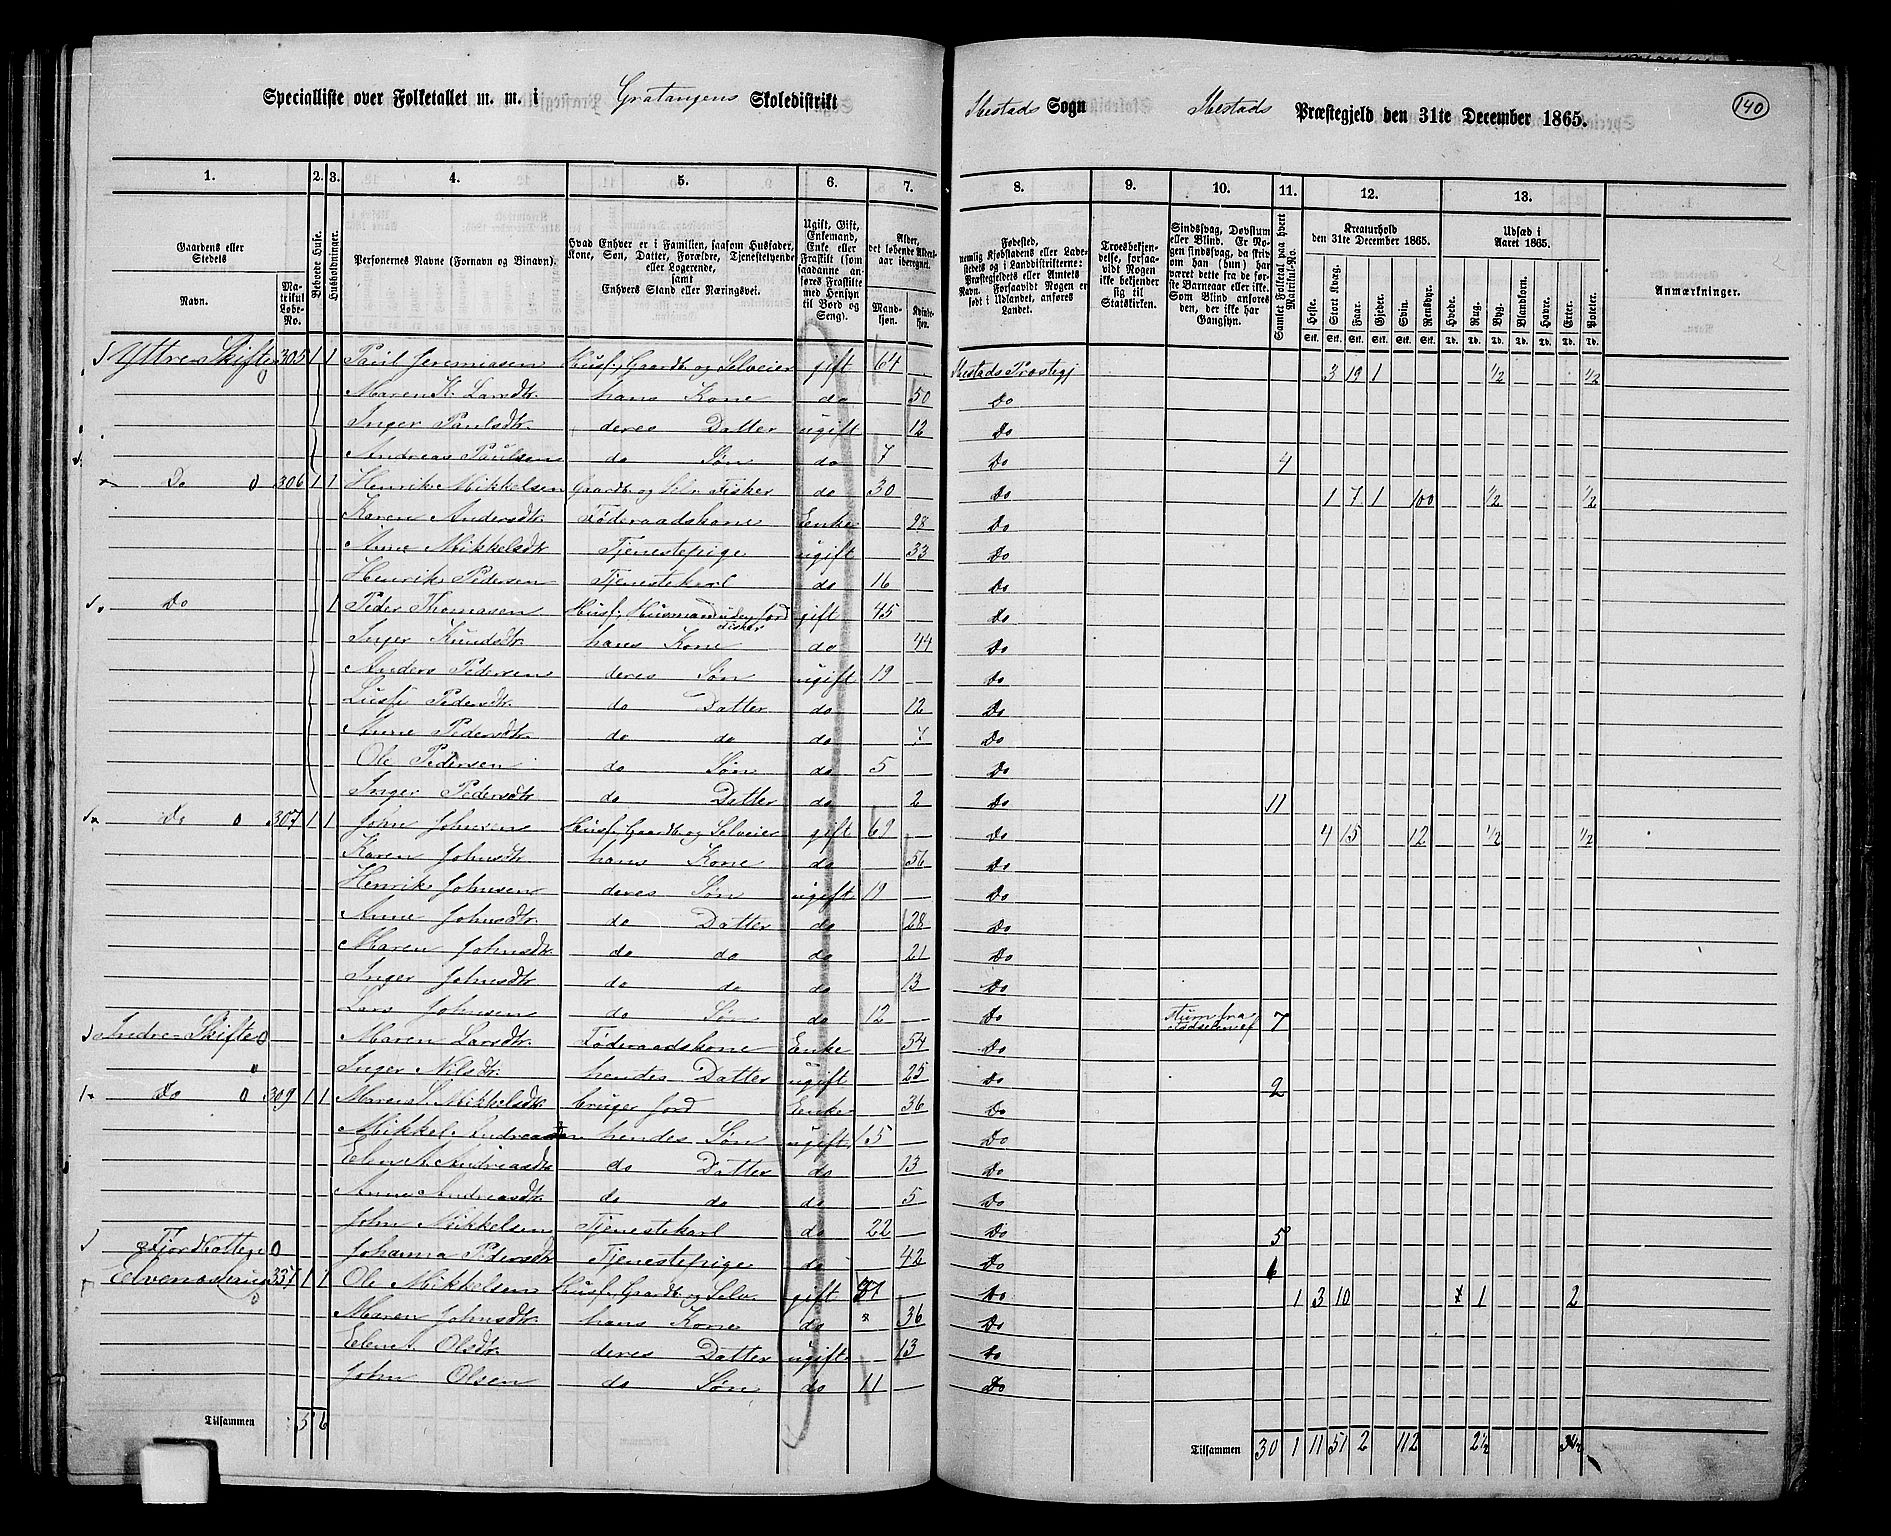 Specialliste over Folketallet m. m. i Gratangens Skoledistrikt Ibestads Sogn Ibestads Præstegjeld den 31te December 1865. 140
1. 2. 3. 4. 5. 6. 7. 8. 9. 10. 11. 12. 13.
Gaardens eller Stedets Navn. Matrikul Løbe-No. Beboede Huse. Husholdninger. Personernes Navne (Fornavn og Binavn). Hvad Enhver er i Familien, saasom Husfader, Kone, Søn, Datter, Forældre, Tjenestetyende eller Logerende, samt Enhvers Stand eller Næringsvei. Ugift, Gift, Enkemand, Enke eller Fraskilt (som saadanne anføres Fraskilte med Hensyn til Bord og Seng). Alder, det løbende Alders-aar iberegnet. Mandkjøn. Kvindekjøn. Fødested, nemlig Kjøbstadens eller Ladestedets og i Landdistrikterne: Præstegjeldets eller Amtets Navn. Forsaavidt Nogen er født i Udlandet, anføres Landet. Troesbekjendelse, forsaavidt Nogen ikke bekjender sig til Statskirken. Sindssvag, Døvstum eller Blind. Er Nogen sindssvag, da skriv om han (hun) har været dette fra de første Barneaar eller ikke. Som Blind anføres den, der ikke har Gangsyn. Samlet Folketal paa hvert Matrikul-No. Kreaturhold den 31te December 1865. Heste. Stort Kvæg. Faar. Gjeder. Svin. Rensdyr. Udsæd i Aaret 1865. Hvede. Rug. Byg. Blandkorn. Havre. Erter. Poteter. Anmærkninger.
Yttre Skifte 305 1 1 Paul Jeremiasen Husf., Gaardb og Selveier gift 64 Ibestads Prestegj 3 19 1 1/2 1/2
Maren K. Larsdtr. hans Kone do 50 Do
Inger Paulsdtr. deres Datter ugift 12 Do
Andreas Paulsen do Søn do 7 Do 4
Do 306 1 1 Henrik Mikkelsen Gaardb og Selv. Fisker do 30 Do 1 7 1 100 1/2 1/2
Karen Andersdtr. Føderaadskone Enke 28 Do
Anne Mikkelsdtr Tjenestepige ugift 33 Do
Henrik Pedersen Tjenestekarl do 16 Do
Do 1 Peder Thomasen Husf. Husmand jord Fisker gift 45 Do
Inger Knudsdtr. hans Kone do 44 Do
Anders Pedersen deres Søn ugift 19 Do
Pedersdtr. do Datter do 12 Do
Anne Pedersdtr. do do do 7 Do
Ole Pedersen do Søn do 5 Do
Inger Pedersdtr do Datter do 2 Do 11
Do 307 1 1 John Johnsen Husf., Gaardb og Selveier gift 69 Do 4 15 12 1/2 1/2
Karen Johnsdtr hans Kone do 56 Do
Henrik Johnsen deres Søn ugift 19 Do
Anne Johnsdtr. do Datter do 28 Do
Maren Johnsdtr. do do do 21 Do
Inger Johnsdtr do do do 13 Do
Lars Johnsen do Søn do 12 Do Stum fra 7
Indre Skifte Maren Larsdtr. Føderaadskone Enke 54 Do
Inger Nilsdtr. hendes Datter ugift 25 Do 2
Do 309 1 1 Maren S. Mikkelsdtr. bruger jord Enke 36 Do
Mikkel Andreassen hendes Søn ugift 15 Do
Elen A. Andreasdtr do Datter do 13 Do
Anne Andreasdtr do do do 5 Do
John Mikkelsen Tjenestekarl do 22 Do 5
Fjordbotten Johanna Pedersdtr Tjenestepige do 42 Do 6
357 1 1 Ole Mikkelsen Husf, Gaardb og Selv. gift 37 Do 1 3 10 1 2
Maren Johnsdtr. hans Kone do 36 Do
Elen Olsdtr. deres Datter ugift 13 Do
John Olsen do Søn do 11 Do
Tilsammen 5 6 Tilsammen 30 1 11 51 2 112 2 1/2 3 1/2